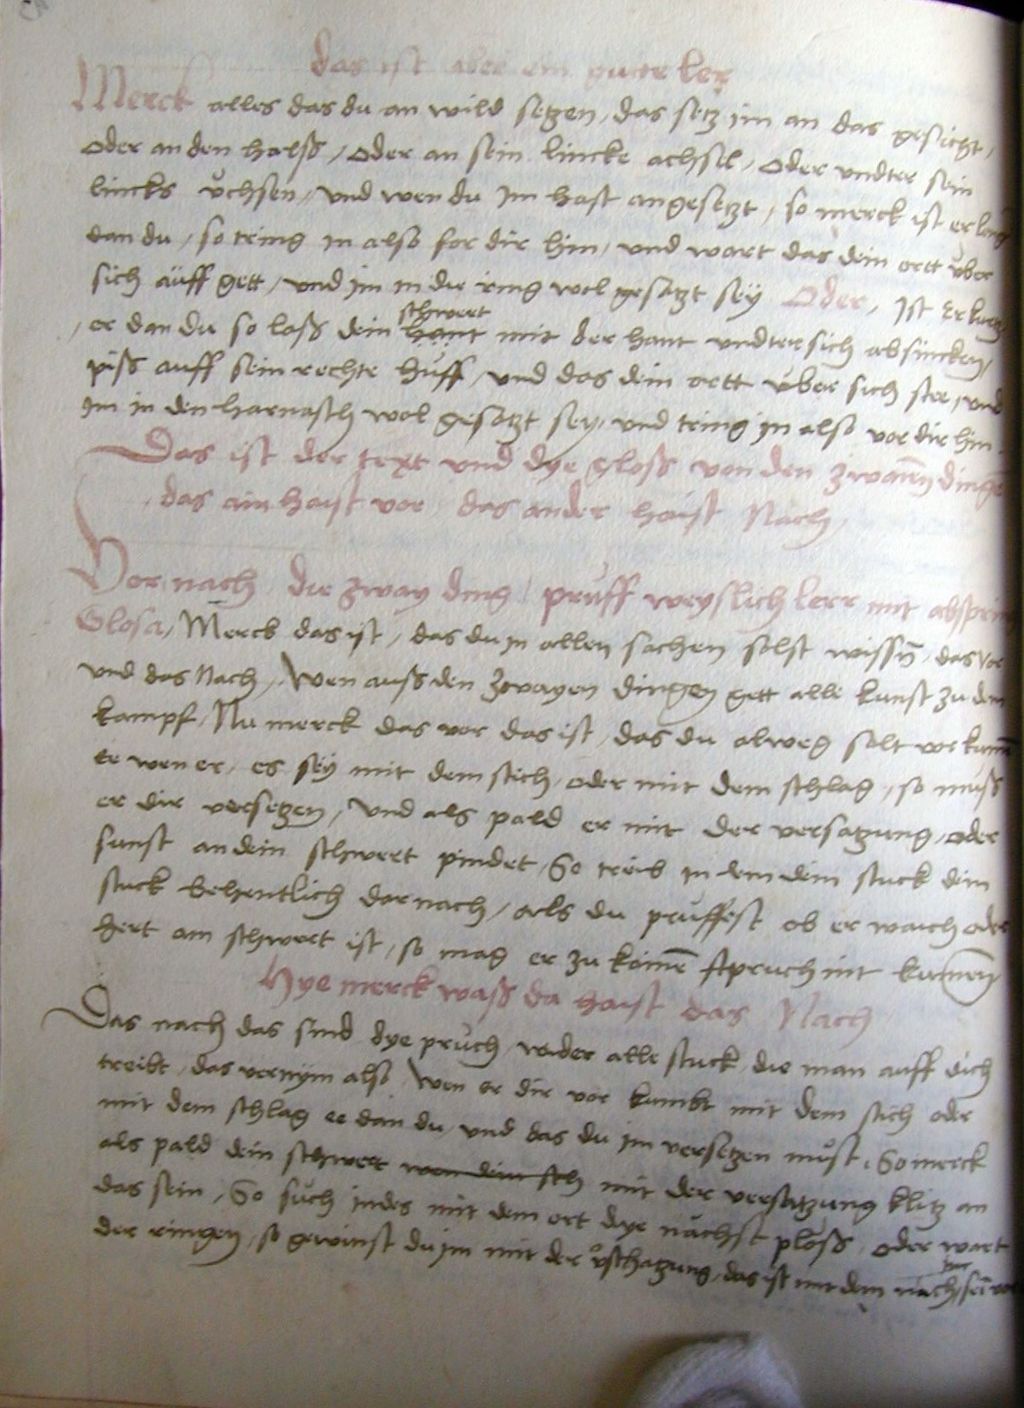 das ist aber ein gutte ler
Merck alles das du an wild setzen, das setz im an das gesicht,
oder an den halsß, oder an sein lincke achsel, oder undter sein
lincks üchsen, und wen du Im hast angesetzt, so merck ist er leng
dan du, so tring in also for dir hin, und wart das dein ortt über
sich aüff gett, und im in die ring wol gesatzt seÿ Oder, Ist Er kurtz
, er dan du so lasß dein hant schwert mit der hant undtersich absincken,
pisß auff sein rechte hüff, und das dein ortt über sich stee, und
Im in den harnasch wol gesatzt sey, und tring in also vor dir hin
Das ist der text und dye glosß von den zwaien dingen
das ain haist vor, das ander haist Nach,
Vor nach die zway ding, prüff weyslich lere mit abspring
Glosa, Merck das ist, das du in allen sachen solst wissn, das vor
und das Nach, Wen ausß den zwayen dingen gett alle kunst zu dem
kampf, Nu merck das vor das ist, das du alweg solt vor kumen
ee wen er, es sey mit dem stich, oder mit dem schlag, so müsß
er dir versetzen, Und als pald er mit der versatzung, oder
sunst an dein schwert pindet, So treib in dem dein stuck dein
stuck behentlich dar nach, als du prüffest ob er waich oder
hert am schwert ist, so mag er zu koinem spruch nit kumen,
Hye merck wasß da haist das Nach
Das nach das sind dye prüch wider alle stuck die man auff dich
treibt, das vernym also Wen er dir vor kumbt mit dem stich oder
mit dem schlag ee dan du, und das du im versetzen müst, So merck
als pald dein schwert wen dein sch mit der versatzung klitz an
das sein, So süch indes mit dem ort dye nächst plösß, oder wart
der ringen, so gewinst du im mit der verschatzung, das ist mit dem nach, sein vor